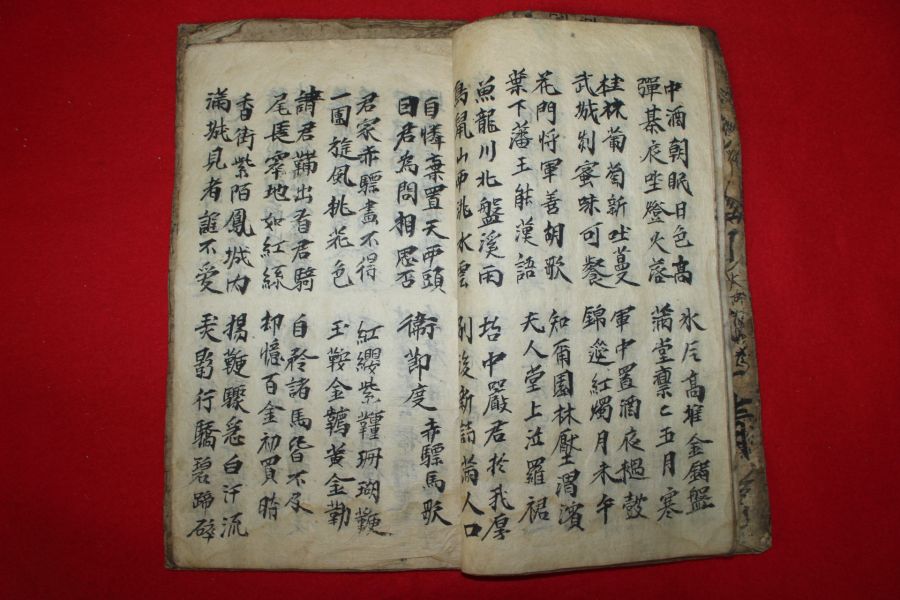 中酒朝眠日色高
彈棊夜坐燈火落
氷片高堆金錯盤
滿堂凜〻五月寒
桂林葡萄新吐蔓
武城刺蜜味可餐
軍中置酒夜撾鼓
錦筵紅燭月未午
花門將軍善胡歌
葉下蕃王能漢語
知爾園林壓渭濱
夫人堂上泣羅裙
魚龍川北盤溪雨
鳥鼠山西洮水雲
坮中嚴君於我厚
別後新詩滿人口
自憐棄置天西頭
曰君為問相思否
衛節度赤驃馬歌
君家赤驃畫不得
一團旋風桃花色
紅纓紫鞚珊瑚鞭
玉鞍金韉黃金勒
請君鞴出看君騎
尾長窣地如紅絲
自矜諸馬皆不及
却憶百金初買時
香街紫陌鳳城內
滿城見者誰不愛
揚鞭驟急白汗流
弄影行驕碧蹄碎